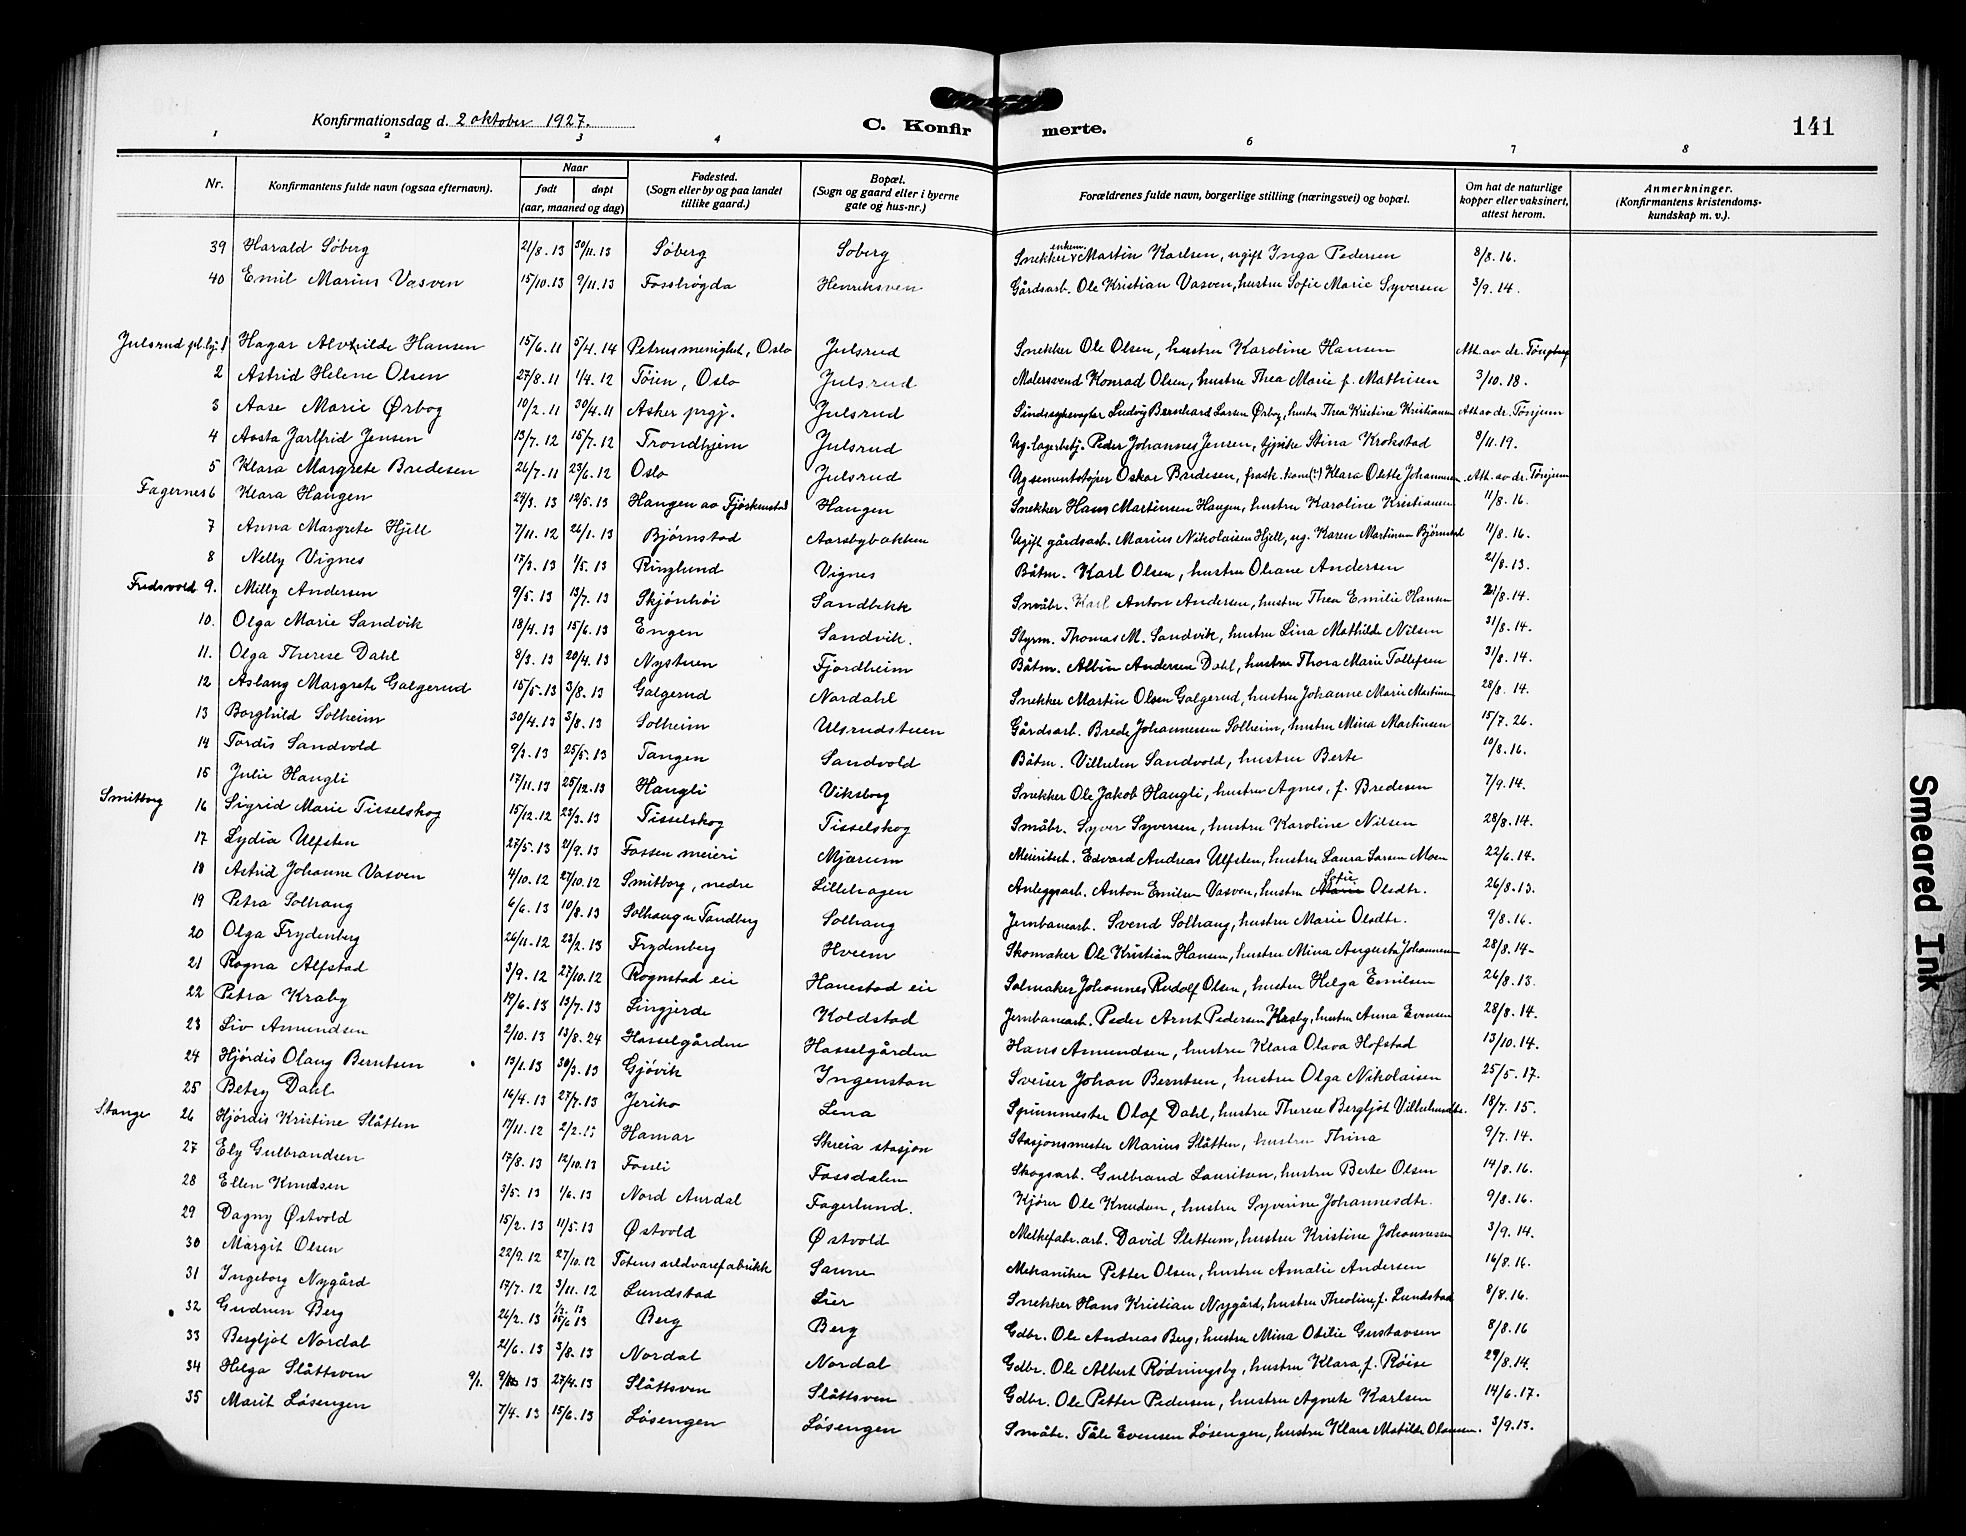 Konfirmationsdag d. 2 oktober 1927.
C. Konfirmerte.
141
1 2 3 4 6 7 8
Nr.
Konfirmantens fulde navn (ogsaa efternavn).
Naar
født døpt
(aar, maaned og dag)
Fødested.
(Sogn eller by og paa landet
tillike gaard.)
Bopæl.
(Sogn og gaard eller i byerne
gate og hus-nr.)
Forældrenes fulde navn, borgerlige stilling (næringsvei) og bopæl.
Om hat de naturlige
kopper eller vaksinert,
attest herom.
Anmerkninger.
(Konfirmantens kristendoms-
kundskap m. v.).
39 Harald Søberg 21/8.13 30/11.13 Søberg Søberg Snekker enkem. Martin Karlsen, ugift Inga Pedersen 8/8.16.
40 Emil Marius Vasven 15/10.13 9/11.13 Fosshøgda Henriksven Gårdsarb. Ole Kristian Vasven, hustru Sofie Marie Syversen 3/9.14.
Julsrud pl.hj. 1 Hagar Alvhilde Hansen 15/6.11 5/4.14 Petrusmenighet, Oslo Julsrud Snekker Ole Olsen, hustru Karoline Hansen Att. av dr.
2 Astrid Helene Olsen 27/8.11 1/4.12 Tøien, Oslo Julsrud Malersvend Konrad Olsen, hustru Thea Marie f. Mathisen 3/10.18.
3 Aase Marie Ørbog 10/2.11 30/4.11 Asker prgj. Julsrud Sindssykevogter Ludvig Bernhard Larsen Ørbog, hustru Thea Kristine Kristiansen Att av dr. Tønjum
4 Aasta Jarlfrid Jensen 13/7.12 15/7.12 Trondhjem Julsrud Ug. lagerbetj. Peder Johannes Jensen, tjpike Stina Krokstad 8/11.19.
5 Klara Margrete Bredesen 26/7.11 23/6.12 Oslo Julsrud Ug sementstøper Oskar Bredesen, frask. kone(?) Klara Olette Johannesen Att. av dr. Tønjum
Fagernes 6 Klara Haugen 29/3.13 12/5.13 Haugen av Haugen Snekker Hans Martinsen Haugen, hustru Karoline Kristiansen 11/8.16.
7 Anna Margrete Hjell 7/11.12 26/1.13 Bjørnstad Aarsbybakken Ugift gårdsarb. Marius Nikolaisen Hjell, ug. Karen Martinsen Bjørnstad 11/8.16.
8 Nelly Vignes 17/3.13 1/5.13 Ringlund Vignes Båtm. Karl Olsen, hustru Oliane Andersen 21/8.13.
Fredsvold 9. Milly Andersen 9/5.13 13/7.13 Skjønhøi Sandbekk Småbr. Karl Anton Andersen, hustru Thea Emilie Hansen 31/8.14.
10. Olga Marie Sandvik 18/4.13 15/6.13 Engen Sandvik. Styrm. Thomas M. Sandvik, hustru Lina Mathilde Nilsen 31/8.14.
11. Olga Therese Dahl 8/3.13 20/4.13 Nystuen Fjordheim Båtm. Albin Andersen Dahl, hustru Thora Marie Tollefsen 31/8.14.
12 Aslaug Margrete Galgerud 15/5.13 3/8.13 Galgerud Nordahl Snekker Martin Olsen Galgerud, hustru Johanne Marie Martinsen 28/8.14.
13 Borghild Solheim 30/4.13 3/8.13 Solheim Ulsrudstuen Gårdsarb. Brede Johannesen Solheim, hustru Mina Martinsen 15/7.26.
14 Tordis Sandvold 9/3.13 25/5.13 Tangen Sandvold Båtm. Vilhelm Sandvold, hustru Berte 10/8.16.
15 Julie Haugli 17/11.13 25/12.13 Haugli Viksborg Snekker Ole Jakob Haugli, hustru Agnes, f. Bredesen 7/9.14.
Smitborg 16 Sigrid Marie Tisselskog 15/12.12 23/3.13 Tisselskog Tisselskog Småbr. Syver Syversen, hustru Karoline Nilsen 28/8.14.
17 Lydia Ulfsten 27/5.13 21/9.13 Fossen meieri Mjærum Meieribest. Edvard Andreas Ulfsten, hustru Laura Larsen Moen 22/6.14.
18 Astrid Johanne Vasven 4/10.12 27/10.12 Smitborg, nedre Lillehagen Anleggsarb. Anton Emilsen Vasven, hustru Sofie Olsdtr. 26/8.13.
19 Petra Solhaug 6/6.13 10/8.13 Solhaug u Tandberg Solhaug Jernbanearb. Svend Solhaug, hustru Marie Olsdtr. 9/8.16.
20 Olga Frydenberg 26/11.12 23/2.13 Frydenberg Hveem Skomaker Ole Kristian Hansen, hustru Mina Augusta Johannesen 28/8.14-
21 Ragna Alfstad 3/9.12 27/10.12 Rognstad eie Hanestad eie Salmaker Johannes Rudolf Olsen, hustru Helga Emilsen 26/8.13.
22 Petra Kraby 19/6.13 13/7.13 Lingjerde Koldstad Jernbanearb. Peder Arnt Pedersen Kraby, hustru Anna Evensen 28/8.14.
23 Liv Amundsen 2/10.13 13/8.24 Hasselgården Hasselgården Hans Amundsen, hustru Klara Olava Hofstad 13/10.14.
24 Hjördis Olaug Berntsen 13/1.13 30/3.13 Gjøvik Ingenstan Sveiser Johan Berntsen, hustru Olga Nikolaisen 25/5.17.
25 Betsy Dahl 16/4.13 27/7.13 Jeriko Lena Spinnmester Olaf Dahl, hustru Therese Bergljot 18/7.15.
Stange 26 Hjördis Kristine Slåtten 17/11.12 2/2.13 Hamar Skreia stasjon Stasjonsmester Marius Slåtten, hustru Thina 9/7.14.
27 Ely Gulbrandsen 17/8.13 12/10.13 Fossli Fossdalen Skogsarb. Gulbrand Lauritsen, hustru Berte Olsen 14/8.16.
28 Ellen Knudsen 3/5.13 1/6.13 Nord Aurdal Fagerlund. Kjører Ole Knudsen, hustru Syverine Johannesdtr. 9/8.16.
29 Dagny Østvold 15/2.13 11/5.13 Østvold Østvold Melkefabr.arb. David Slettum, hustru Kristine Johannessen 3/9.14.
30 Margit Olsen 22/9.12 27/10.12 Totens uldvarefabrikk Sanne Mekaniker Petter Olsen, hustru Amalie Andersen 16/8.16.
31 Ingeborg Nygård 17/7.12 3/11.12 Lundstad Lier Snekker Hans Kristian Nygård, hustru Theoline, f. Lundstad 8/8.16.
32 Gudrun Berg 26/2.13 1/3.13 15/6 13 Berg Berg Gdbr. Ole Andreas Berg, hustru Mina Otilie Gustavsen 8/8.16
33 Bergljot Nordal 21/6.13 3/8.13 Nordal Nordal Gdbr. Ole Albert Rødningsby, hustru Klara, f. Røise 29/8.14.
34 Helga Slåttsven 9/1. 13 27/4.13 Slåttsven Slåttsven Gdbr. Ole Petter Pedersen, hustru Agnete Karlsen 14/6.17.
35 Marit Løsengen 7/4.13 15/6.13 Løsengen Løsengen Småbr. Tåle Evensen Løsengen, hustru Klara Matilde Olausen. 3/9.13.
Smeared Ink